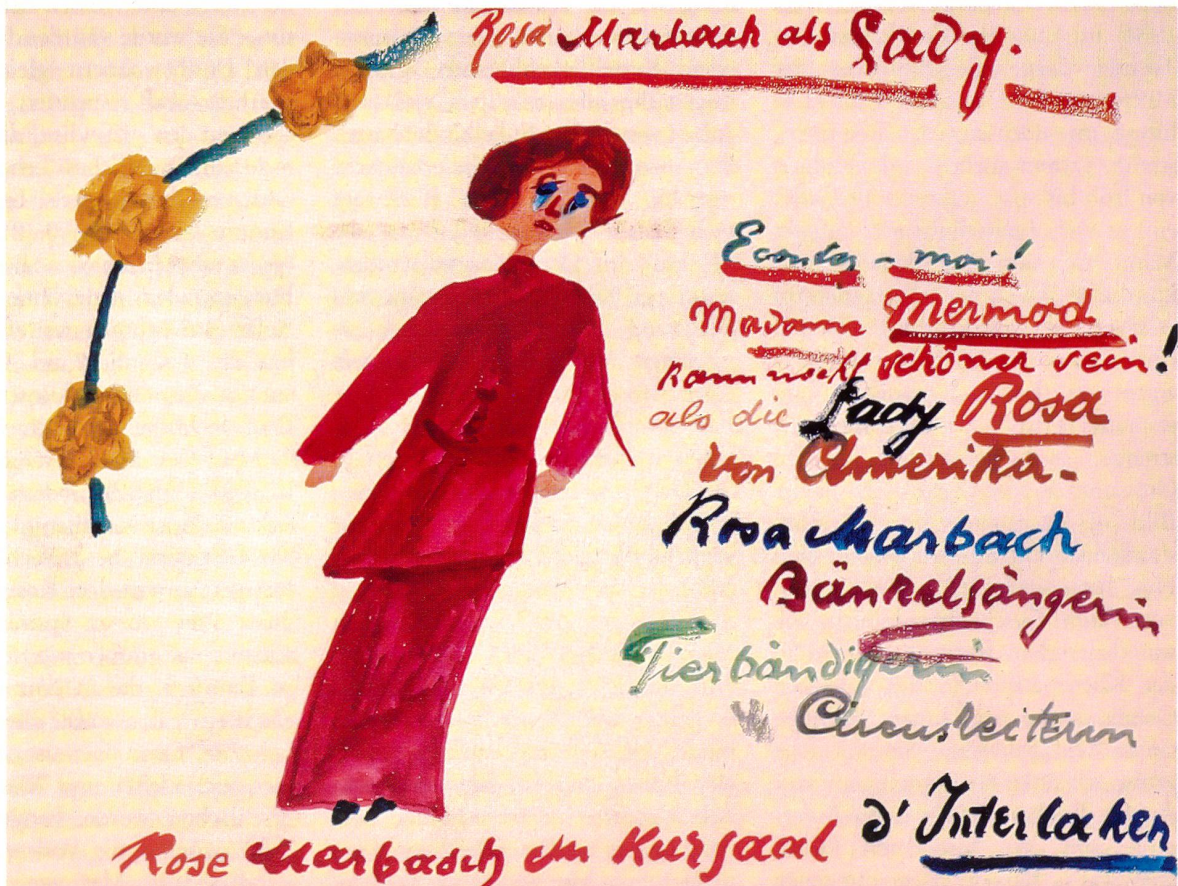 Rosa Marbach als Lady.
Ecouter - moi!
Madame Mermod
kann nicht schöner sein!
als die Lady Rosa
von Amerika.
Rosa Marbach
Bänkelsängerin
Tierbändigerin
Circusreiterin
d'Interlaken
Rose Marbach im Kursaal